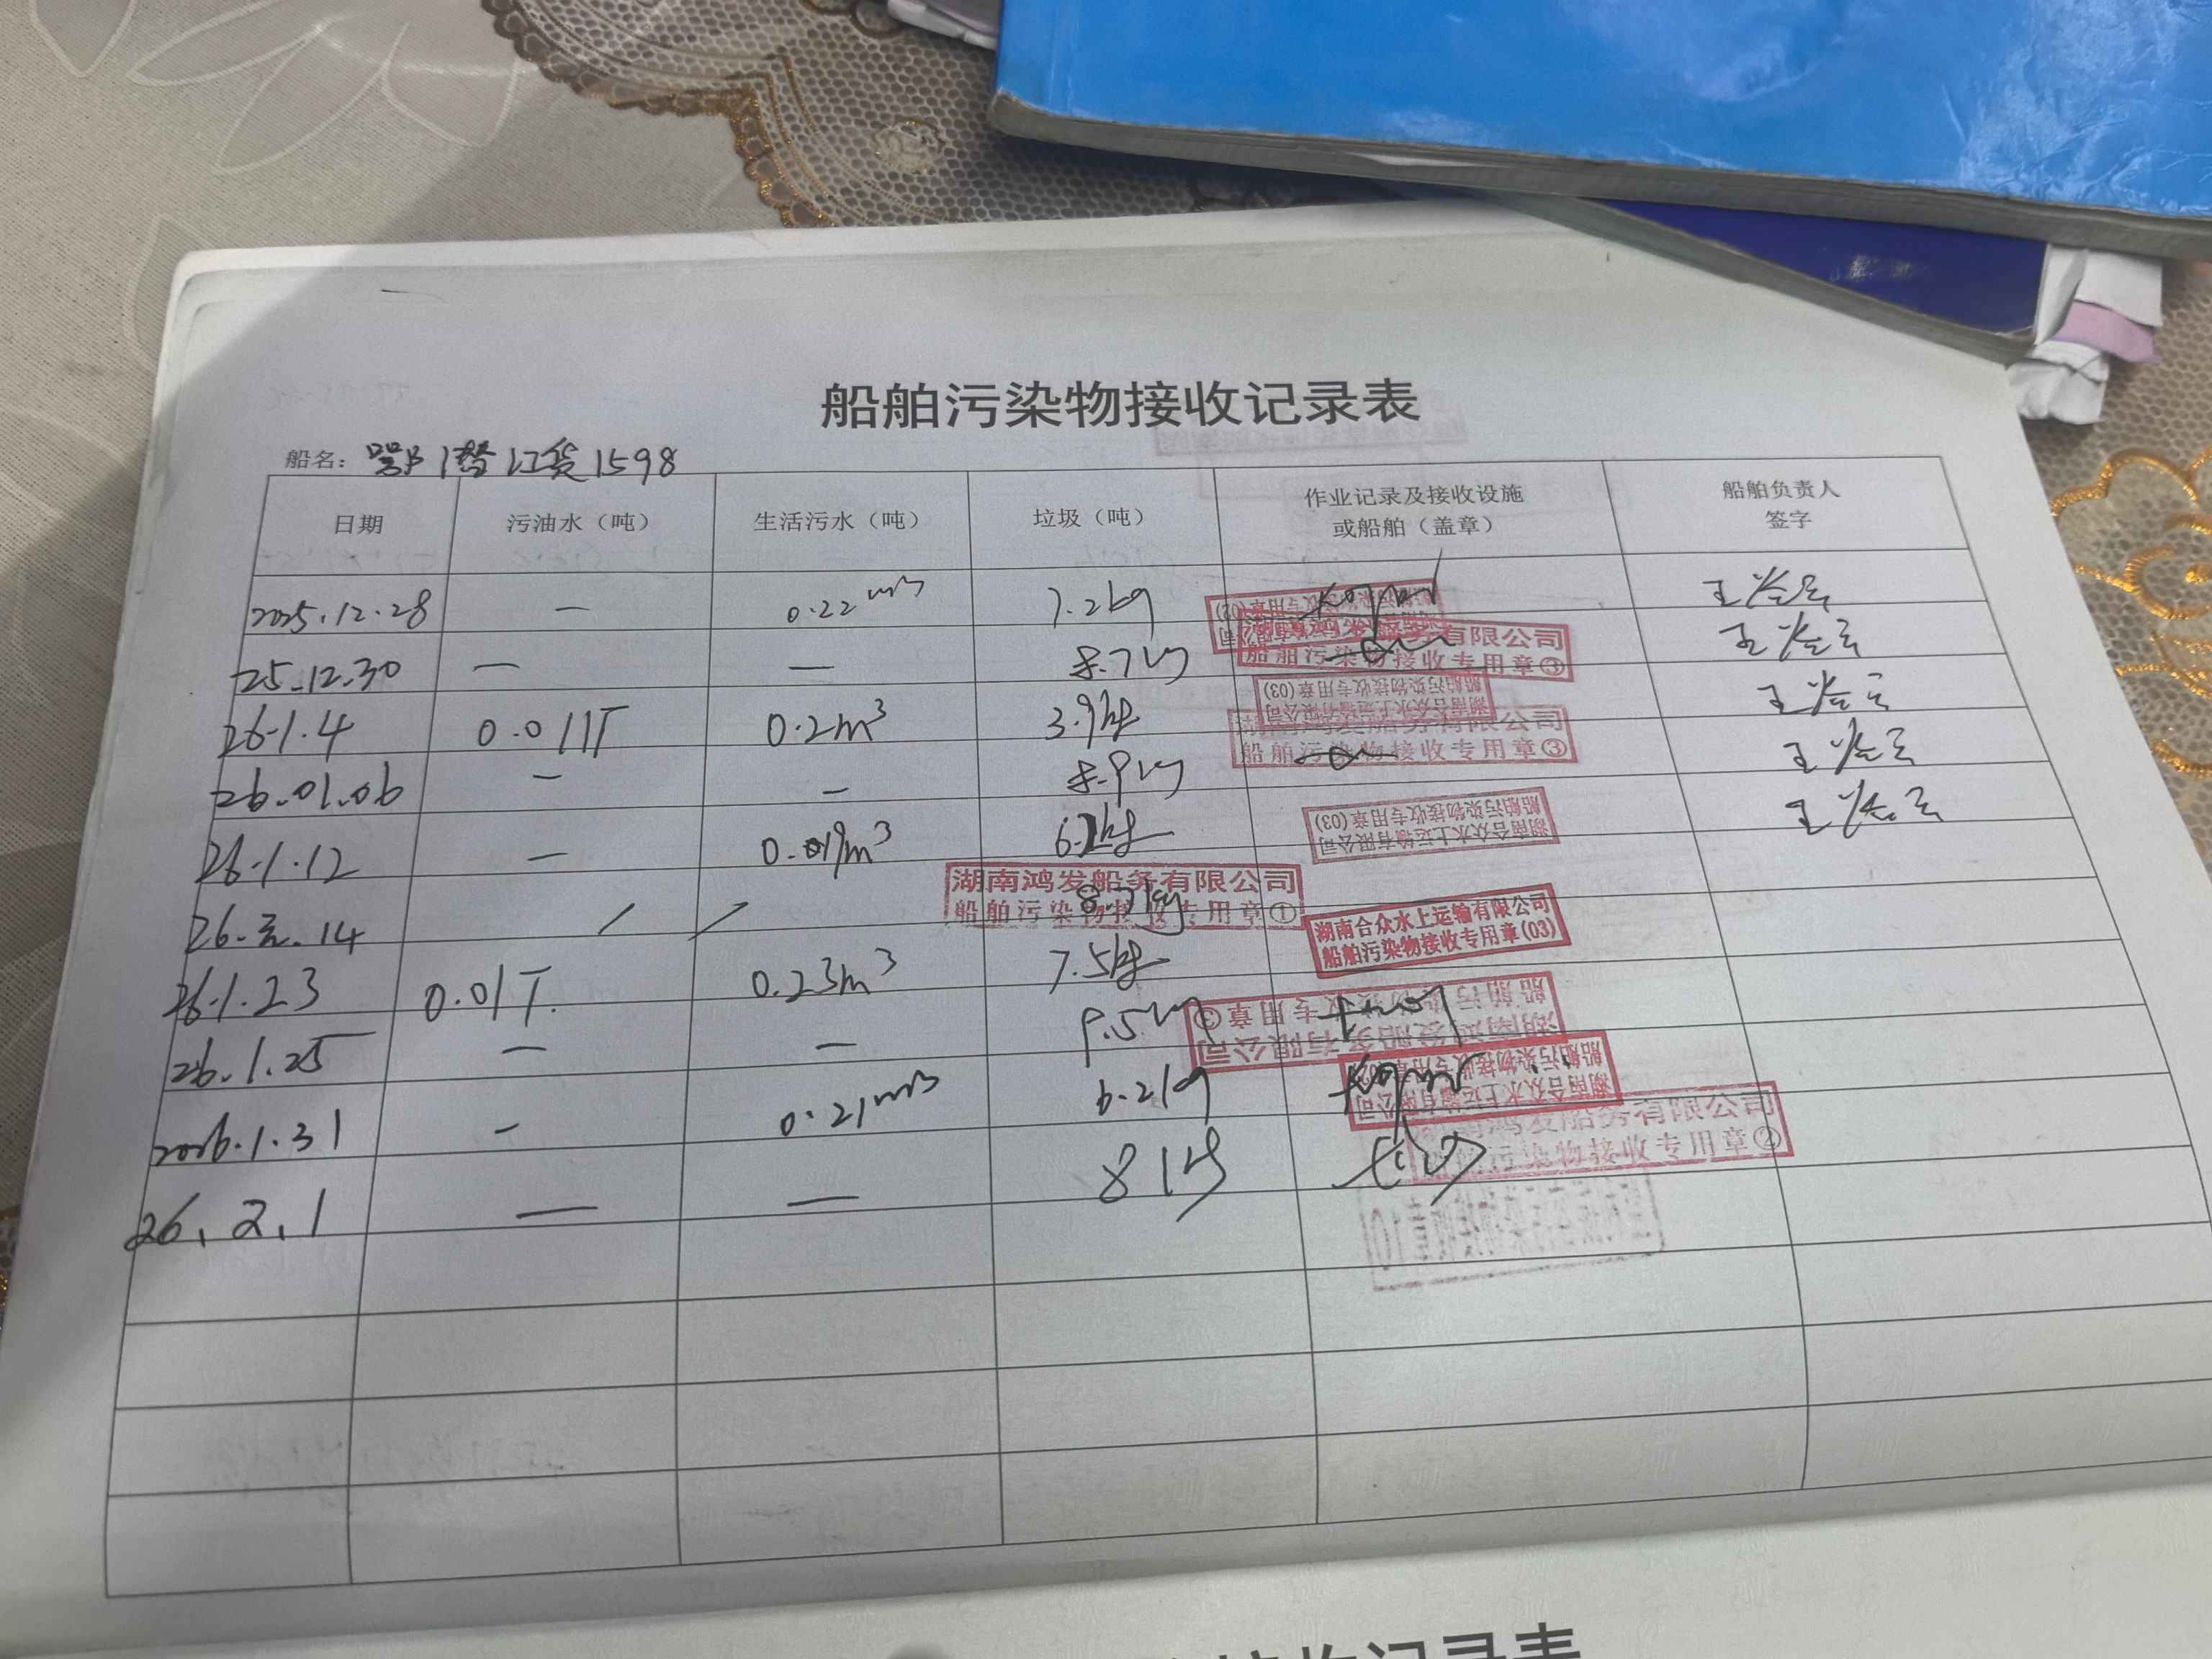 船舶污染物接收记录表
船名：鄂潜江货1598
日期 污油水（吨） 生活污水（吨） 垃圾（吨） 作业记录及接收设施或船舶（盖章） 船舶负责人签字
2025.12.28 — 0.22m3 7.2kg
湖南合众水上运输有限公司
船舶污染物接收专用章(02)
25.12.30 — — 8.7kg
船舶污染物接收专用章③
26.1.4 0.011T 0.2m³ 3.9kg
湖南合众水上运输有限公司
船舶污染物接收专用章(03)
26.01.06 — — 8.9kg
湖南鸿发船务有限公司
船舶污染物接收专用章③
26.1.12 — m³
湖南合众水上运输有限公司
船舶污染物接收专用章(03)
26.元.14 / /
湖南鸿发船务有限公司
船舶污染物接收专用章①
26.1.23 0.01T. 0.23m³ 7.5kg
湖南合众水上运输有限公司
船舶污染物接收专用章(03)
26.1.25 — — 9.5kg
湖南鸿发船务有限公司
船舶污染物接收专用章③
2026.1.31 - 0.21m3 6.2kg
湖南合众水上运输有限公司
船舶污染物接收专用章(02)
26.2.1 — — 8kg
鸿发船务有限公司
污染物接收专用章②
接收记录表